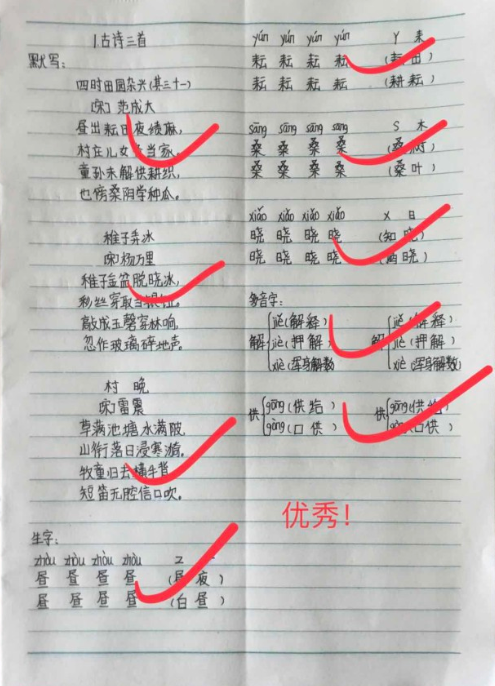 1 古诗三首
默写：
四时田园杂兴(其三十一)
[宋] 范成大
昼出耘田夜绩麻，
村庄儿女 当家，
童孙未解供耕织，
也傍桑阴学种瓜。
稚子弄冰
[宋] 杨万里
稚子金盆脱晓冰，
彩丝穿取当银
敲成玉磬穿林响，
忽作玻璃碎地声。
村 晚
[宋] 雷震
草满池塘水满陂，
山衔落日浸寒漪，
牧童归去横牛背，
短笛无腔信口吹。
生字：
zhòu zhòu zhòu zhòu Z
昼 昼 昼 昼 (昼夜)
昼 昼 昼 昼 (白昼)
yún yún yún yún Y 耒
耘 耘 耘 耘 (耘田)
耘 耘 耘 耘 (耕耘)
sāng sāng sāng sāng S 木
桑 桑 桑 桑 (桑树)
桑 桑 桑 桑 (桑叶)
xiǎo xiǎo xiǎo xiǎo X 日
晓 晓 晓 晓 (知晓)
晓 晓 晓 晓 (晓)
多音字：
jiě (解释) jiě (解释)
解 jiè (押解) 解 jiè (押解)
xiè (浑身解数) xiè (浑身解数)
供 gōng (供给) 供 gōng (供给)
gòng (口供) gòng (口供)
优秀！